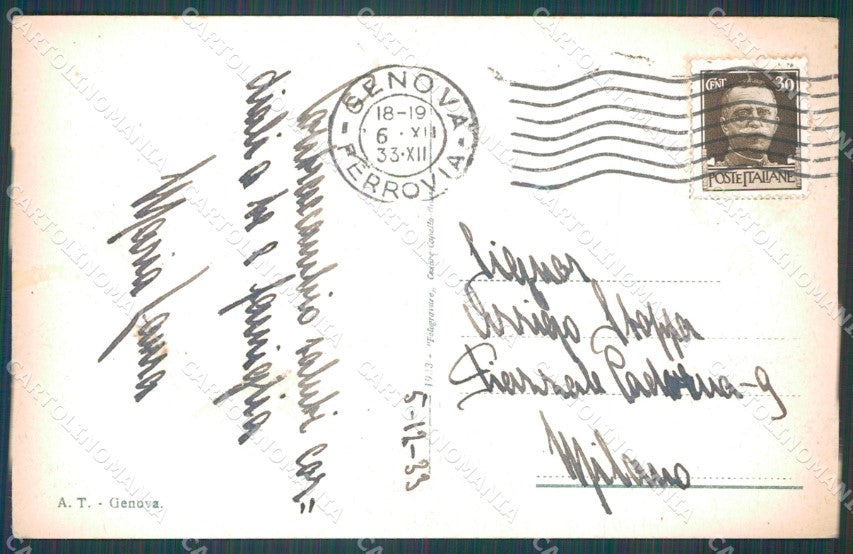 GENOVA
18-19
6 · XII
33·XII
FERROVIA
CENT 30
POSTE ITALIANE
Signor
Arrigo Stoppa
Piazzale Cadorna-9
Milano
saluti
a te e famiglia
Maria
5-12-33
1913 - "Fotogravure, Cesare Capello
A. T. - Genova.
CARTOLINOMANIA